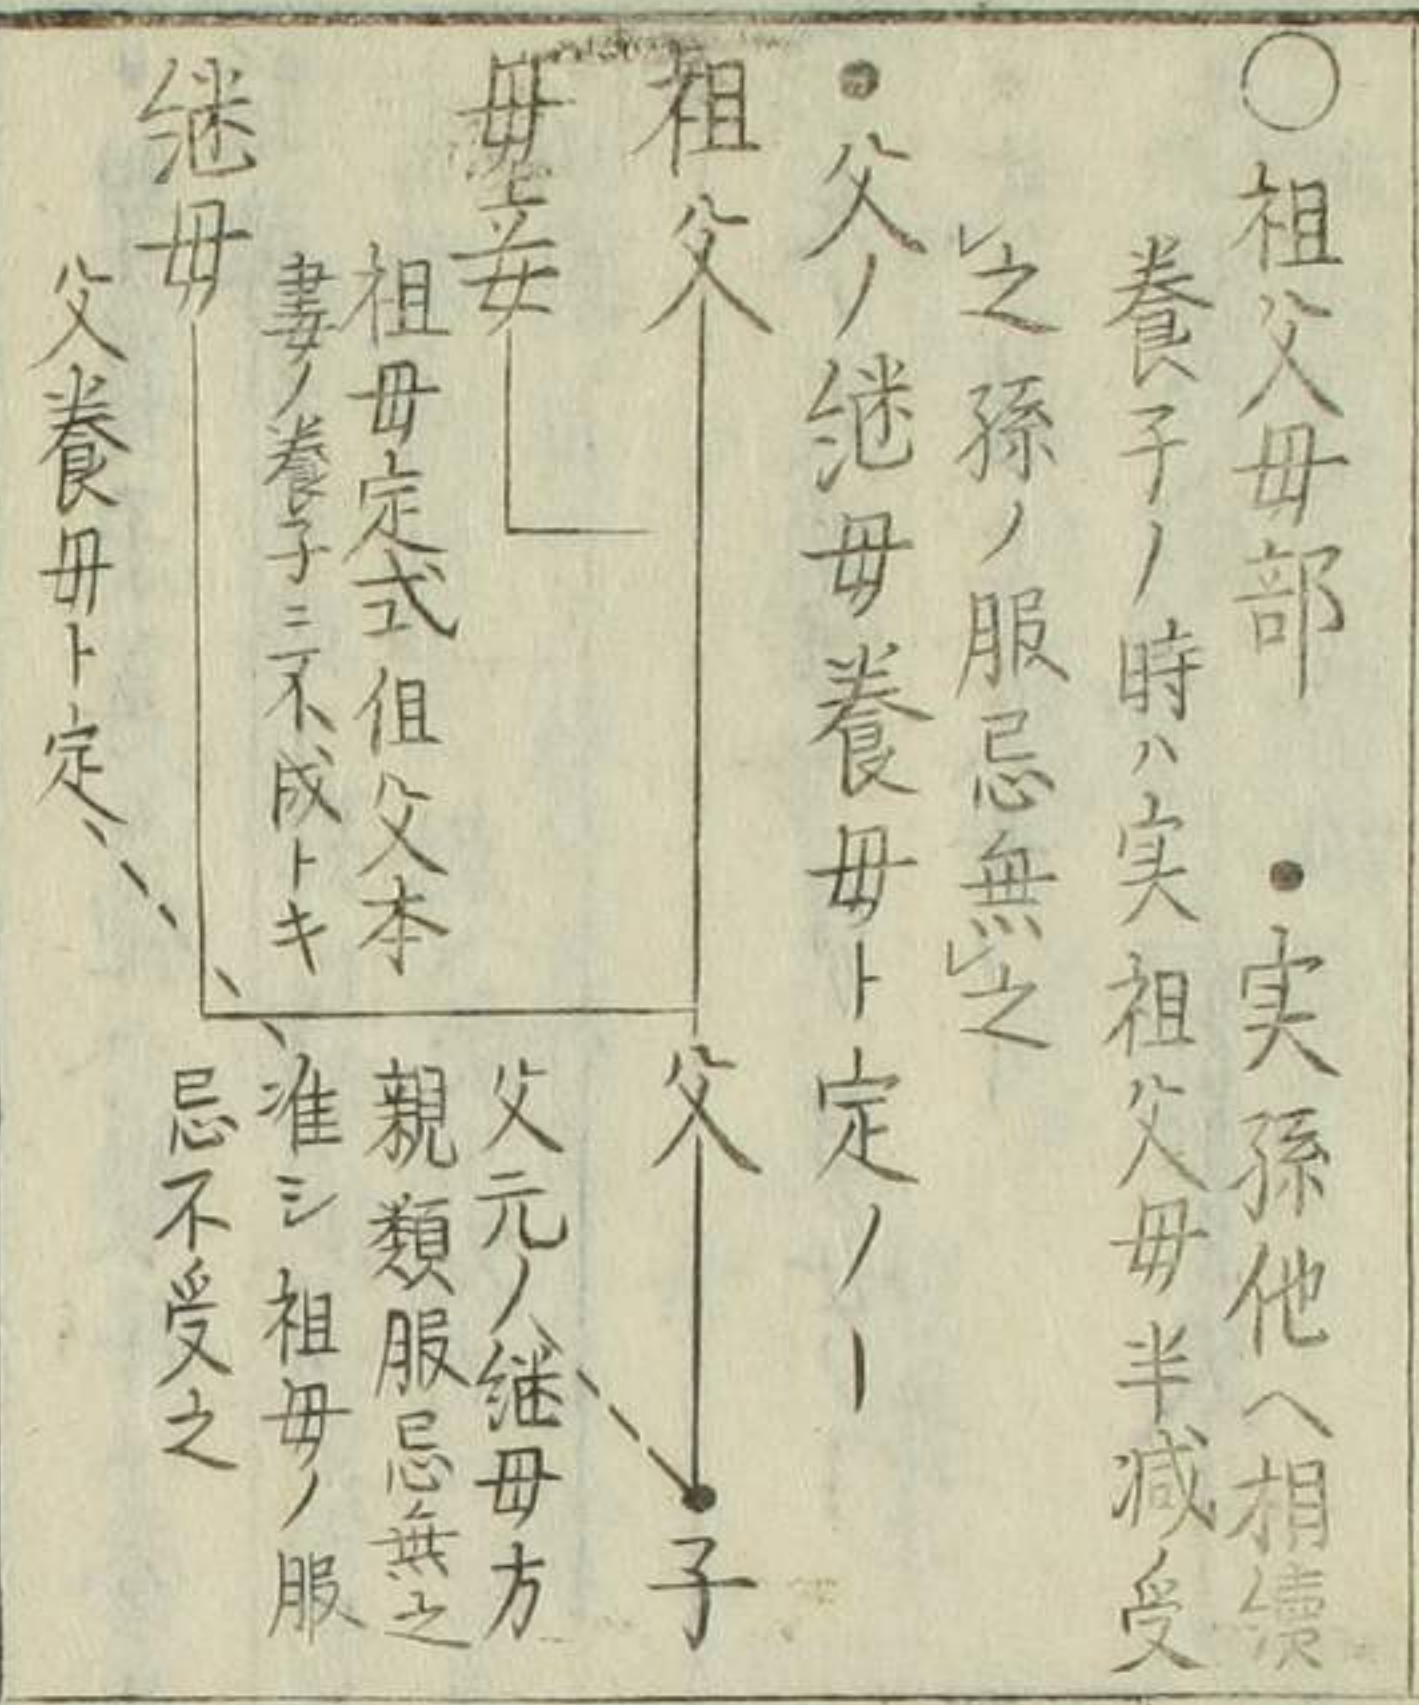 ○祖父母部　●実孫他ヘ相續
養子ノ時ハ実祖父母半減ノ受
レ之孫ノ服忌無レ之
●父ノ継母養母ト定ノー
祖父
父
子
母
妾
祖母定式伹父本
妻ノ養子ニ不成トキ
継母
父養母ト定
父元ノ継母方
親類服忌無之
准シ祖母ノ服
忌不受之